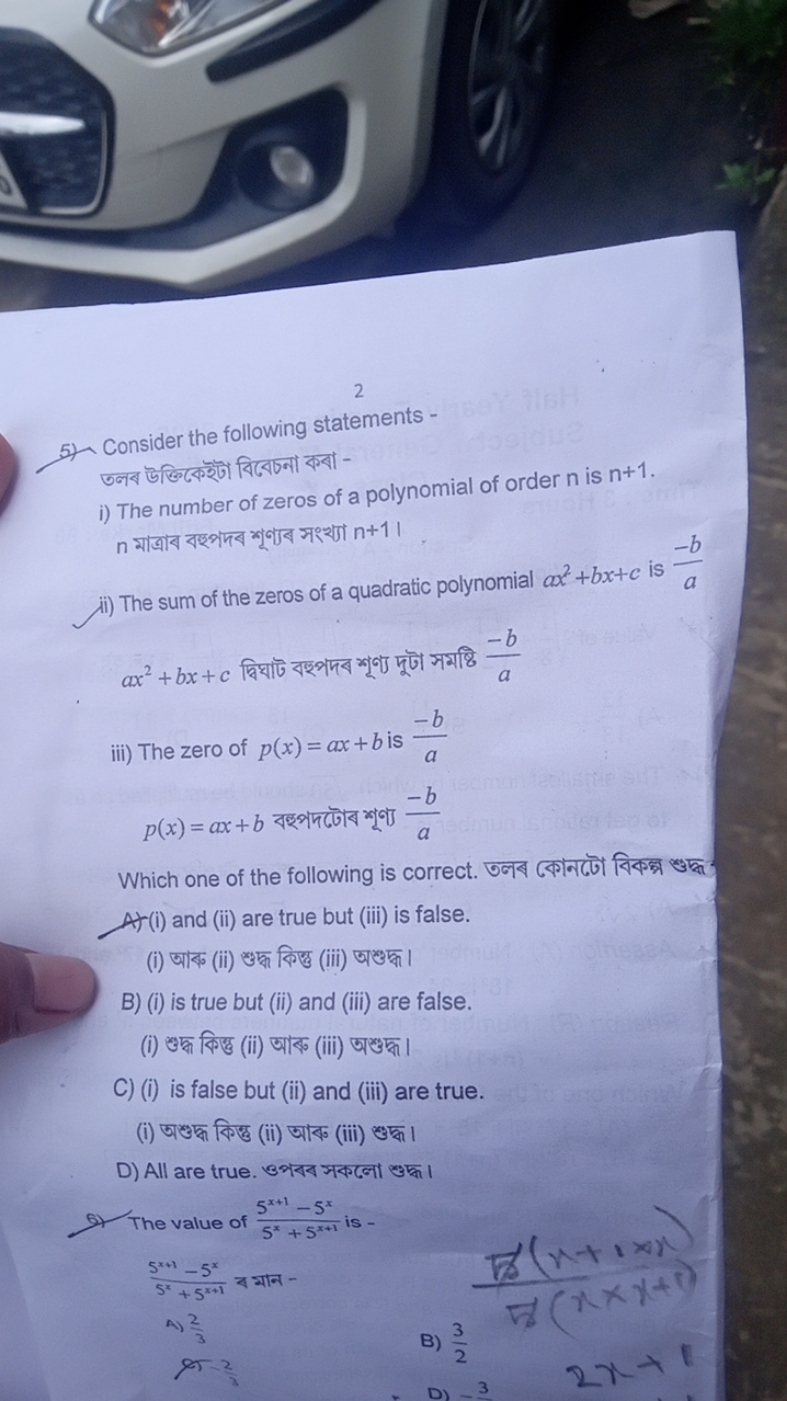 2
5) Consider the following statements -
তলৰ উক্তিকেইটা বিবেচনা কৰা -
i) The number of zeros of a polynomial of order n is n+1.
n মাত্ৰাৰ বহুপদৰ শূণ্যৰ সংখ্যা n+1।
ii) The sum of the zeros of a quadratic polynomial ax²+bx+c is -b/a
ax² + bx + c দ্বিঘাট বহুপদৰ শূণ্য দূটা সমষ্টি -b/a
iii) The zero of p(x) = ax + b is -b/a
p(x) = ax + b বহুপদটোৰ শূণ্য -b/a
Which one of the following is correct. তলৰ কোনটো বিকল্প শুদ্ধ
A) (i) and (ii) are true but (iii) is false.
(i) আৰু (ii) শুদ্ধ কিন্তু (iii) অশুদ্ধ।
B) (i) is true but (ii) and (iii) are false.
(i) শুদ্ধ কিন্তু (ii) আৰু (iii) অশুদ্ধ।
C) (i) is false but (ii) and (iii) are true.
(i) অশুদ্ধ কিন্তু (ii) আৰু (iii) শুদ্ধ।
D) All are true. ওপৰৰ সকলো শুদ্ধ।
6) The value of (5^(x+1) - 5^x)/(5^x + 5^(x+1)) is -
(5^(x+1) - 5^x)/(5^x + 5^(x+1)) ৰ মান -
A) 2/3
B) 3/2
-2/3
D) -3
2x+1